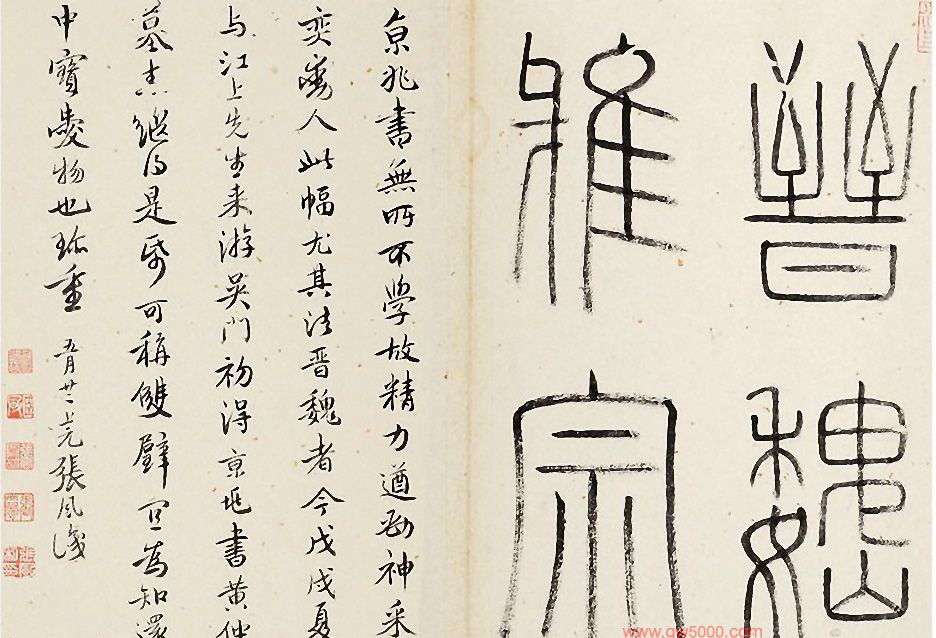 晉魏
雅宗
京兆書無所不學故精力遒勁神采
奕人此幅尤其法晋魏者今戊戌夏
与江上先生来游吴門初得京兆書黄仲
墓志繼得是帋可稱雙璧宜為知還
中寶愛物也珎重 張風識
www.qw5000.com